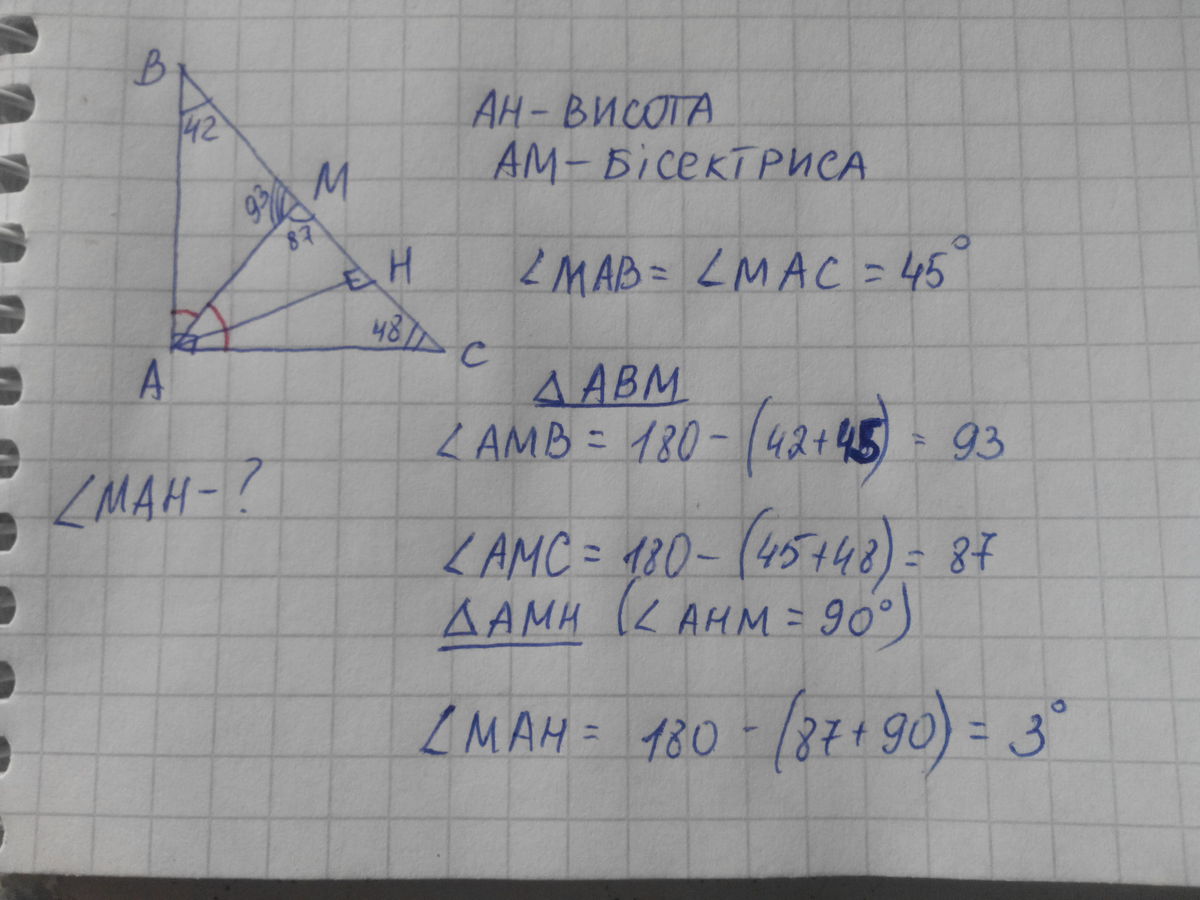 B
42
M
93
87
H
48
A
C
AH - ВИСОТА
AM - БІСЕКТРИСА
∠MAB = ∠MAC = 45°
△ ABM
∠AMB = 180 - (42+45) = 93
∠MAH - ?
∠AMC = 180 - (45+48) = 87
△AMH (∠AHM = 90°)
∠MAH = 180 - (87+90) = 3°